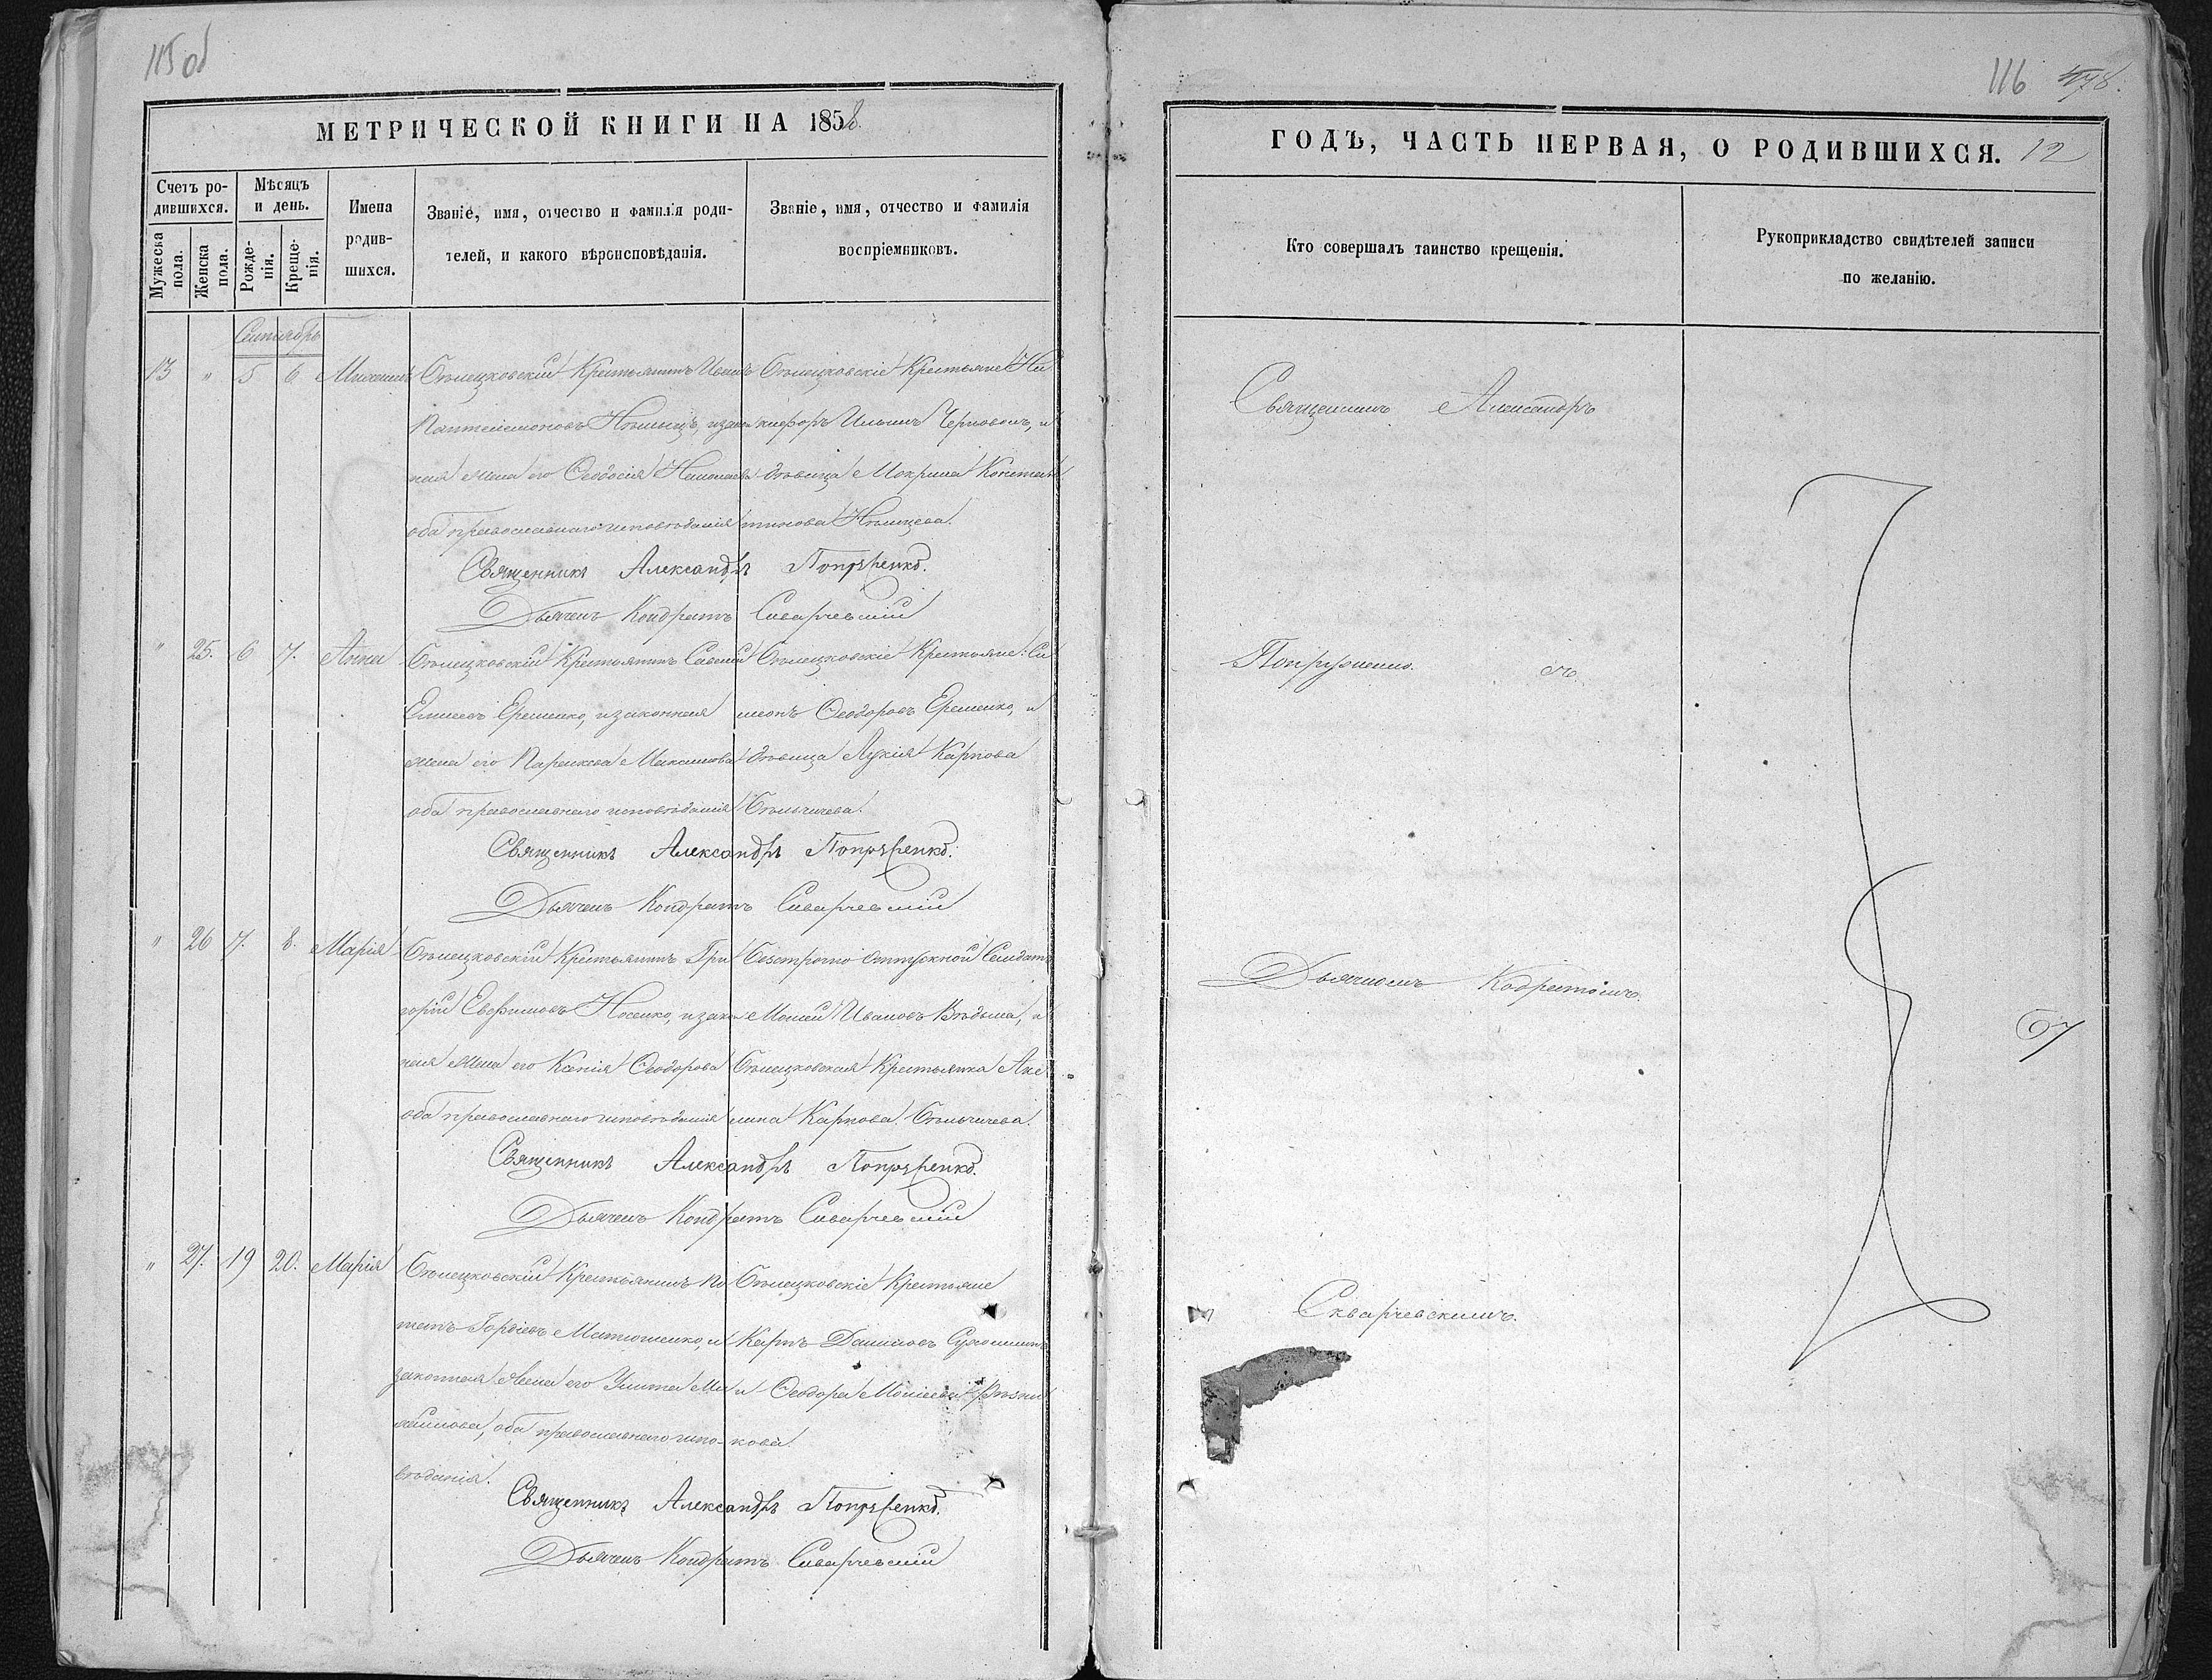 115 об
МЕТРИЧЕСКОЙ КНИГИ НА 1858.
Счетъ родившихся.
Мужеска пола.
Женска пола.
Мѣсяцъ и день.
Рожденія.
Крещенія.
Имена родившихся.
Званіе, имя, отчество и фамилія родителей, и какого вѣроисповѣданія.
Званіе, имя, отчество и фамилія воспріемниковъ.
Сентябрь
13 " 5 6 Михаилъ
Крестьянинъ Иванъ
Пантелеимоновъ Нѣмецъ, и закон
ная жена его Ѳеодосія Николаева
оба православнаго исповѣданія
Крестьяне Ни
кифоръ Ильинъ Черноволъ, и
дѣвица Мокрина Констан
тинова Нѣмцева.
Священникъ Александръ Попруженко.
Дьячекъ Кондратъ Скварчевскій
" 25. 6 7. Анна
Крестьянинъ Савелій
Еременко, и законная
жена его Параскева Максимова
оба православнаго исповѣданія
Крестьяне: Си
меонъ Ѳеодоровъ Еременко, и
дѣвица Лукія Карпова
Священникъ Александръ Попруженко.
Дьячекъ Кондратъ Скварчевскій
" 26 7. 8. Марія
Крестьянинъ Гри
горій Евфимовъ Носенко, и закон
ная жена его Ксенія Ѳеодорова
оба православнаго исповѣданія
Безсрочно отпускной Солдатъ
Моисей Ивановъ Вѣдьма, и
Крестьянка Аку
лина Карпова
Священникъ Александръ Попруженко.
Дьячекъ Кондратъ Скварчевскій
" 27. 19 20. Марія
Крестьянинъ По
тапъ Гордіевъ Матюшенко, и
законная жена его Улита Ма
ксимова, оба православнаго испо-
вѣданія.
Крестьяне
Карпъ Даниловъ
и Ѳеодора Моисеева
кова.
Священникъ Александръ Попруженко.
Дьячекъ Кондратъ Скварчевскій
116 478.
ГОДЪ, ЧАСТЬ ПЕРВАЯ, О РОДИВШИХСЯ. 12
Кто совершалъ таинство крещенія.
Рукоприкладство свидѣтелей записи по желанію.
Священникъ Александръ
Попруженко. съ
Дьячкомъ Кодратомъ
Скварчевскимъ.
67